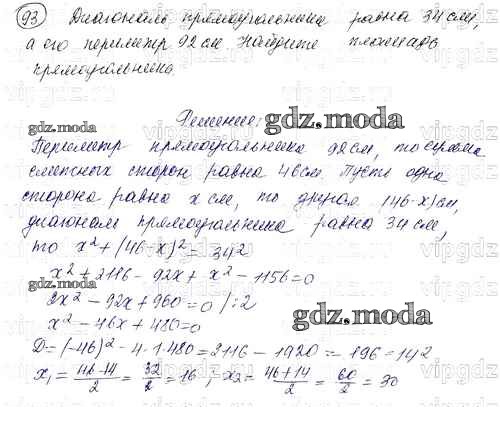 93) Диагональ прямоугольника равна 34 см,
а его периметр 92 см. Найдите площадь
прямоугольника.
Решение:
gdz.moda
gdz.moda
Периметр прямоугольника 92 см, то сумма
смежных сторон равна 46 см. Пусть одна
сторона равна x см, то другая (46-x) см,
диагональ прямоугольника равна 34 см,
то x² + (46-x)² = 34²
x² + 2116 - 92x + x² - 1156 = 0
gdz.moda
2x² - 92x + 960 = 0 /:2
x² - 46x + 480 = 0
gdz.moda
D = (-46)² - 4·1·480 = 2116 - 1920 = 196 = 14²
x₁ = (46-14)/2 = 32/2 = 16 ; x₂ = (46+14)/2 = 60/2 = 30